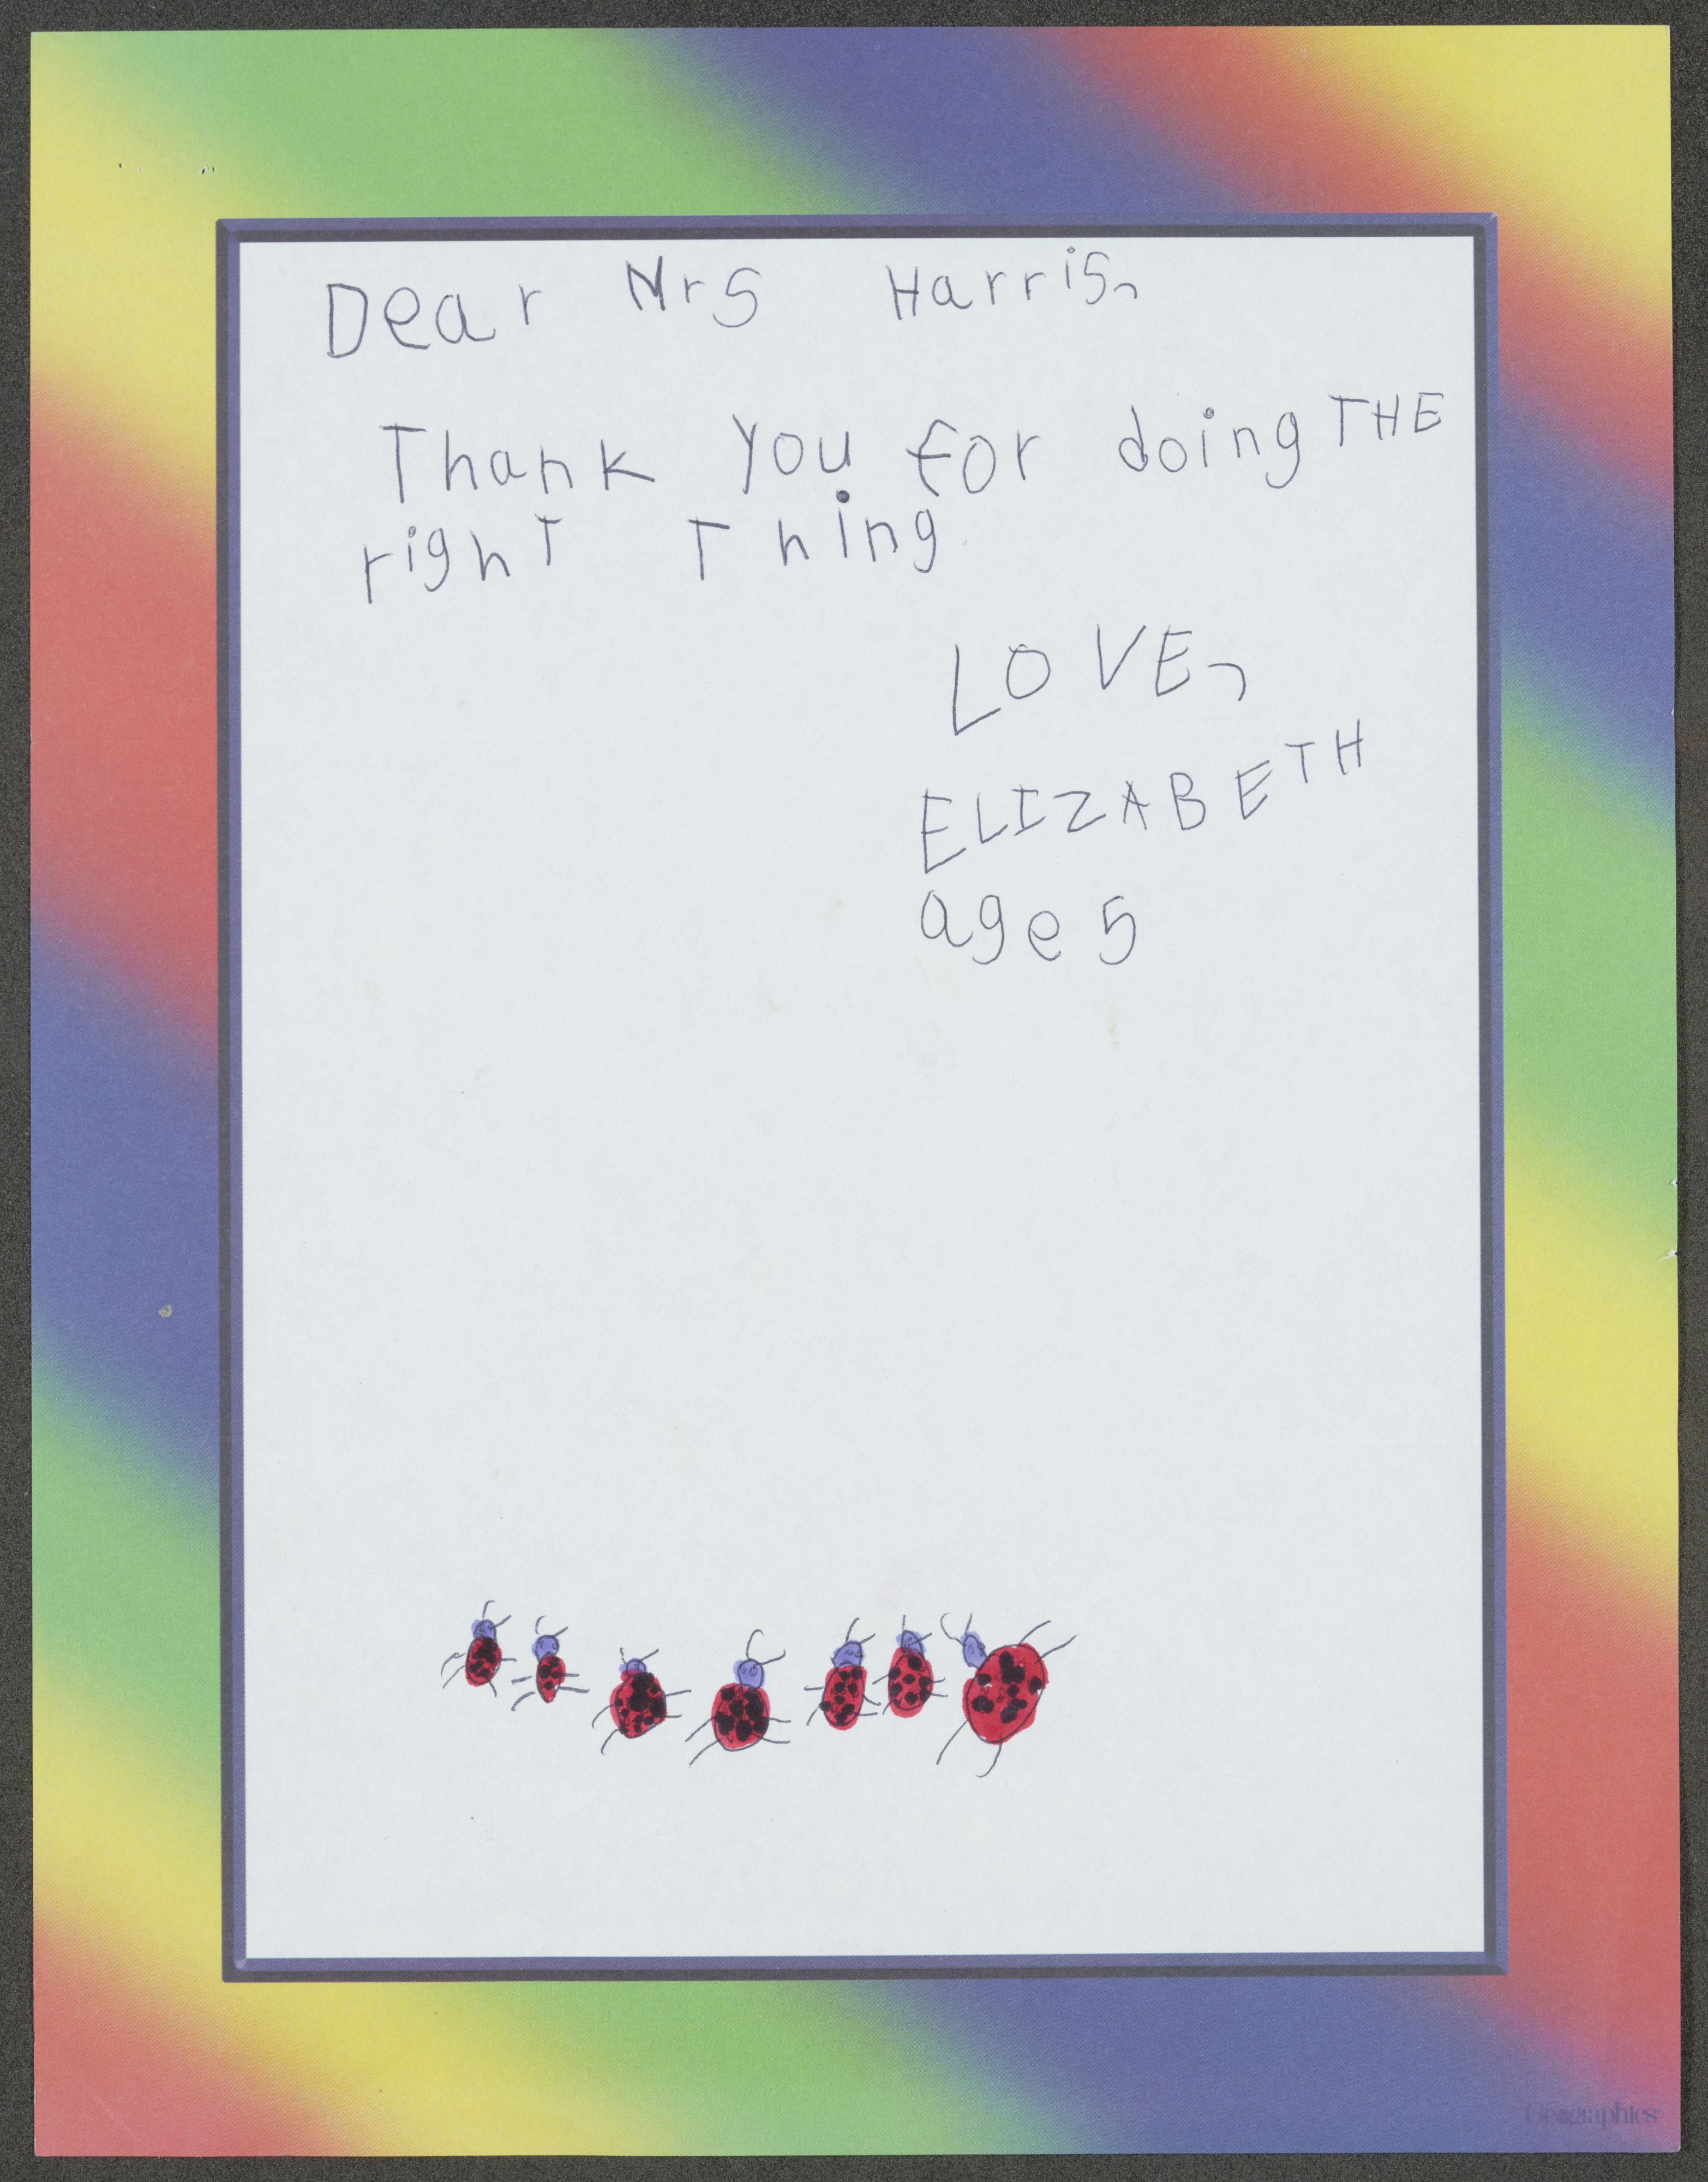 Dear Mrs Harris,
Thank you for doing THE
right Thing
LOVE,
ELIZABETH
age 5
Geographics